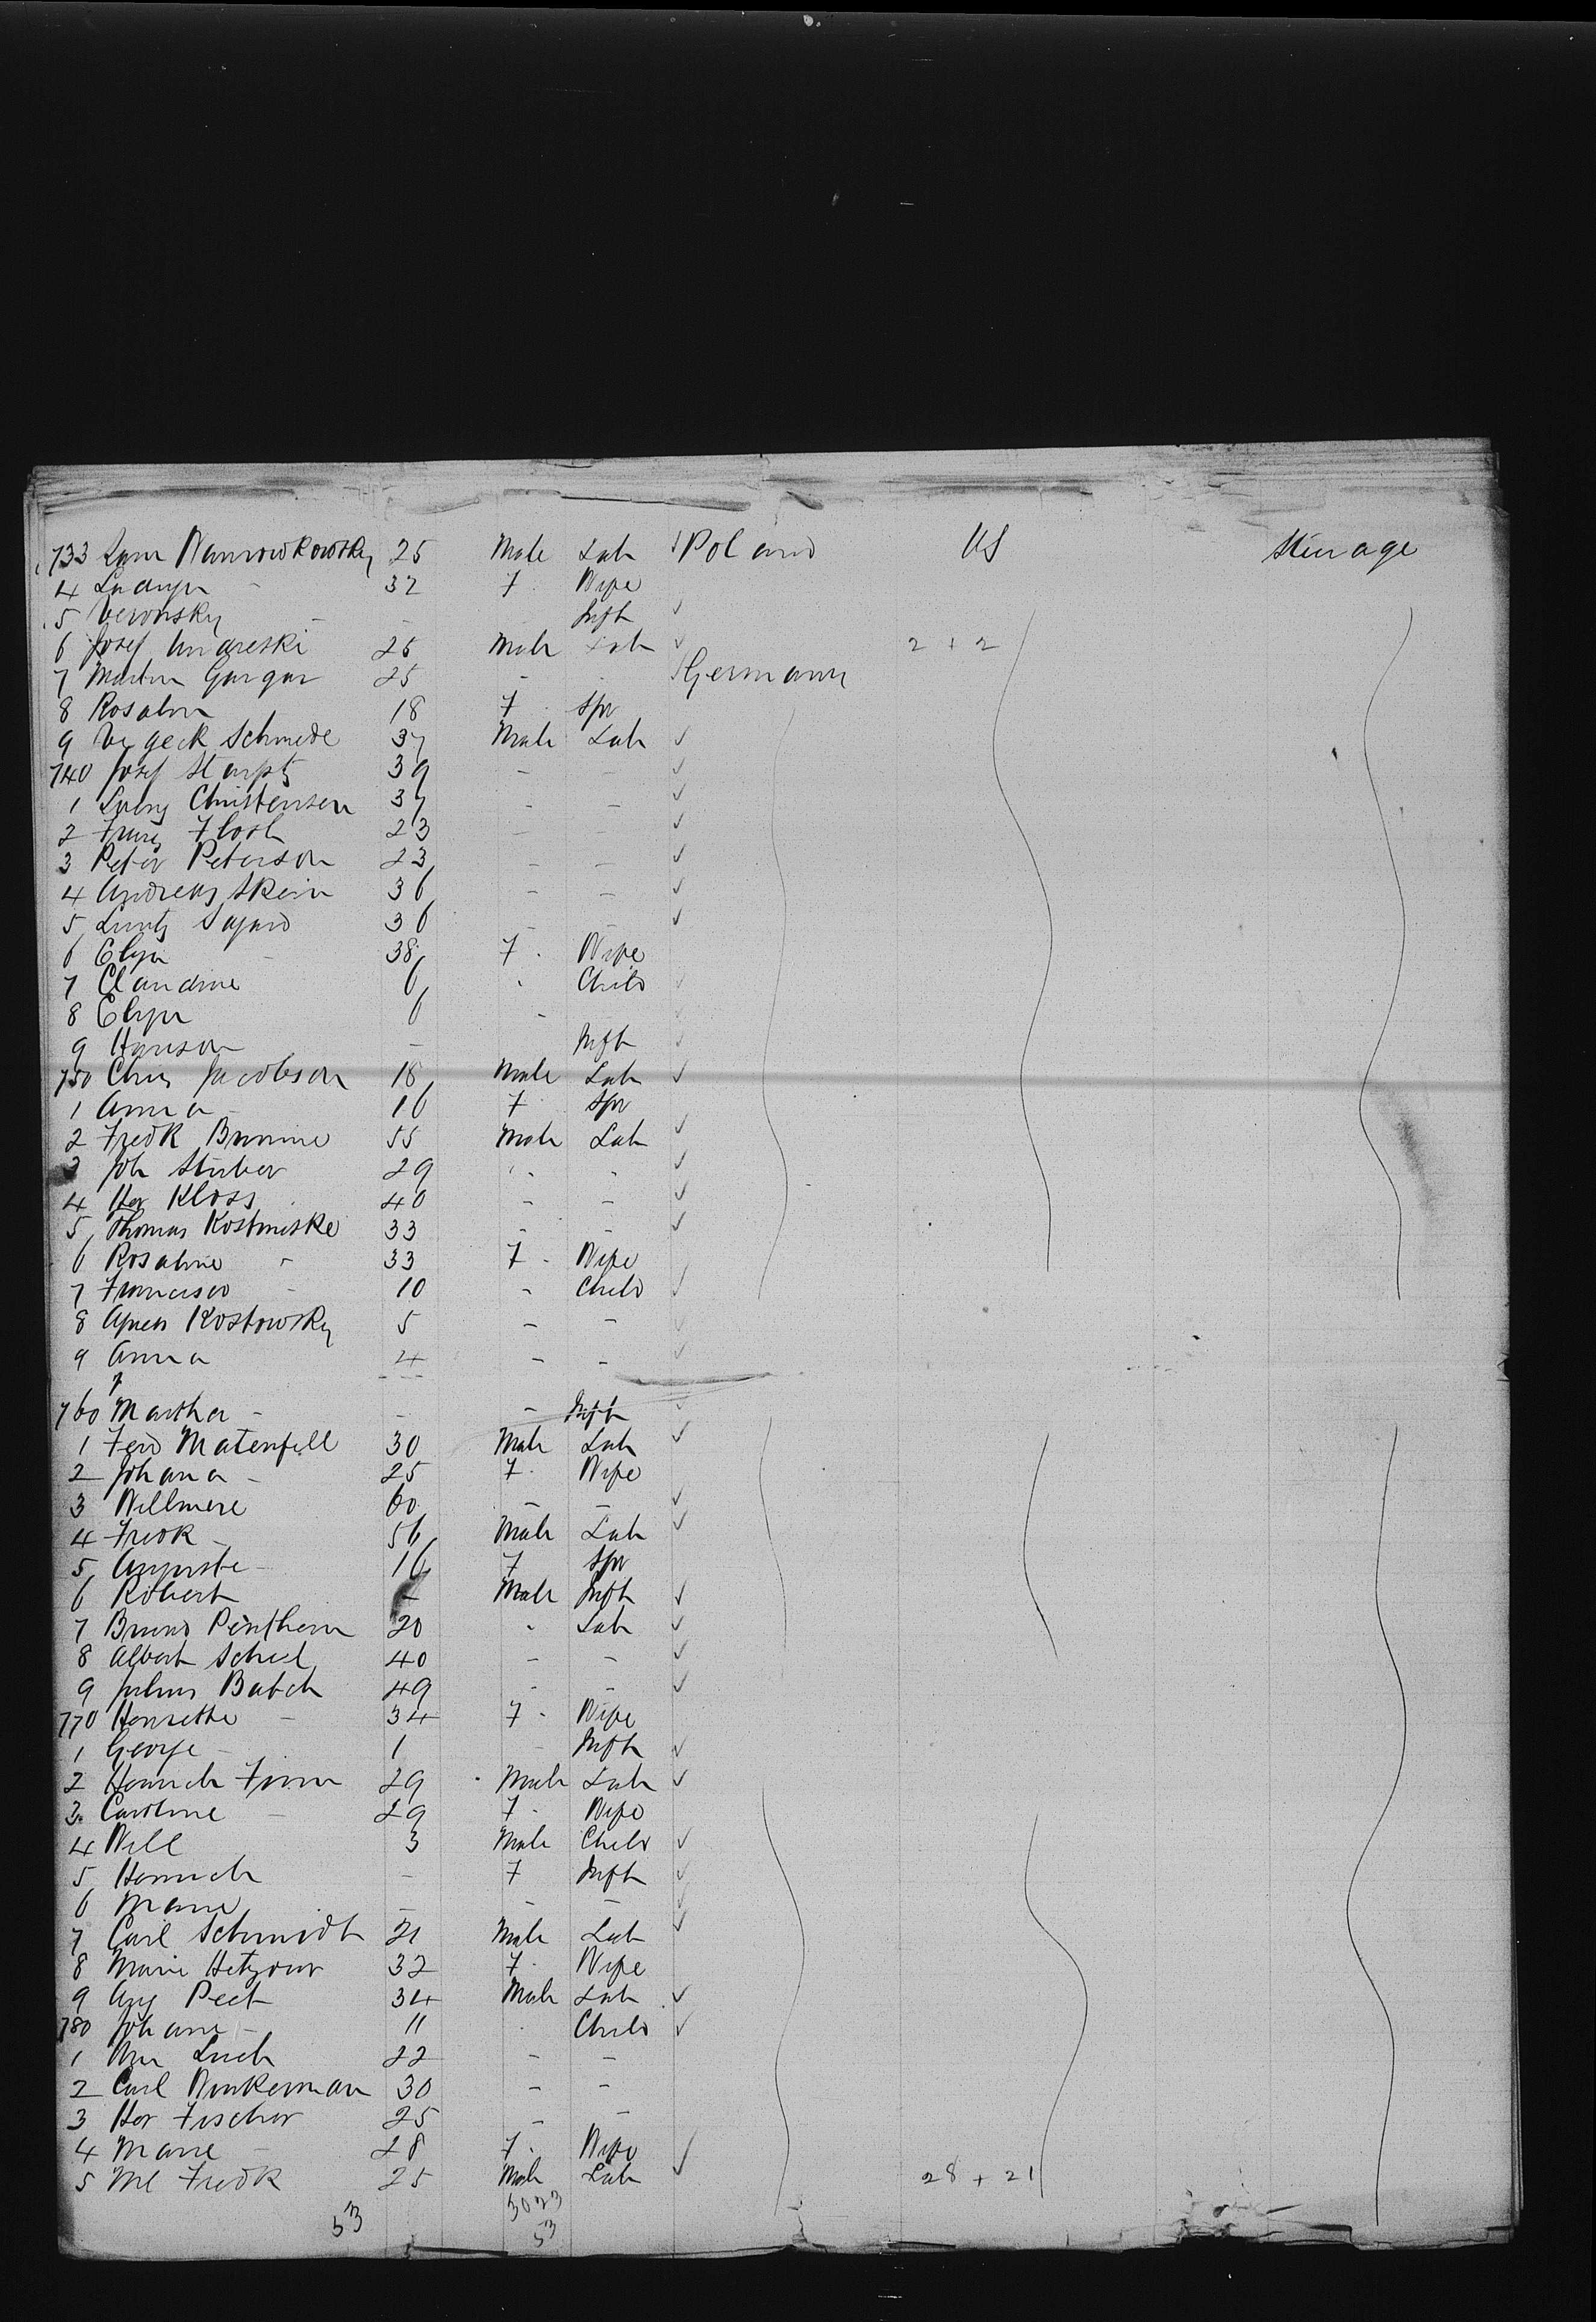 733 25 Male Lab Poland US Steerage
4 32 F. Wife
5 Veronsky - - Inft
6 Josef Andreski 25 Male Lab 2 + 2
7 Martin Gargar 25 - - Germany
8 Rosalin 18 F. Spr
9 Schmede 37 Male Lab
740 Josef 39 - -
1 Christensen 37 - -
2 23 - -
3 Peter Peterson 23 - -
4 Andreas Skein 36 - -
5 36 - -
6 Elyn - 38 F. Wife
7 Claudine 6 - Child
8 Elyn 6 -
9 Hanson - Inft
750 Chris Jacobson 18 Male Lab
1 Anna - 16 F Spr
2 Fredk Brunne 55 Male Lab
3 Joh Stuber 29 - -
4 Her Kloss 40 - -
5 Thomas Kostmiske 33 - -
6 Rosaline - 33 F. Wife
7 Francisco - 10 - Child
8 Agnes Kostowsky 5 - -
9 Anna 4 - -
760 Martha - - - Inft
1 Ferd Matenfell 30 Male Lab
2 Johana - 25 F. Wife
3 Willmere 60 - -
4 Fredk - 56 Male Lab
5 Auguste - 16 F Spr
6 Robert - Male Inft
7 Bruno Penthern 20 - Lab
8 Albert Scheel 40 - -
9 Julius Batch 49 - -
770 Henrette - 34 F. Wife
1 George - 1 - Inft
2 Heinrich 29 Male Lab
3 Caroline - 29 F. Wife
4 Will 3 Male Child
5 Heinrich - F Inft
6 Marie - - -
7 Carl Schmidt 21 Male Lab
8 Marie 32 F. Wife
9 Aug Pect 34 Male Lab
780 Johann - 11 - Child
1 Lueh 22 - -
2 Carl Winkerman 30 - -
3 Her Fischer 25 - -
4 Marie - 28 F. Wife
5 Fredk 25 Male Lab 28 + 21
53 30 23
53